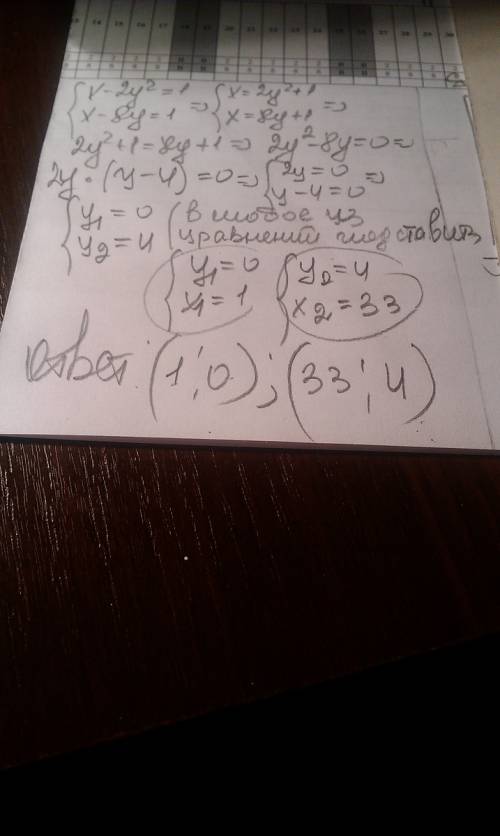 {x-2y²=1 => {x=2y²+1 =>
{x-8y=1 {x=8y+1
2y²+1=8y+1=> 2y²-8y=0=>
2y·(y-4)=0=> {2y=0 =>
{y-4=0
{y₁=0 (в любое из
{y₂=4 уравнений подставить
{y₁=0 {y₂=4
{x₁=1 {x₂=33
ответ: (1;0);(33;4)